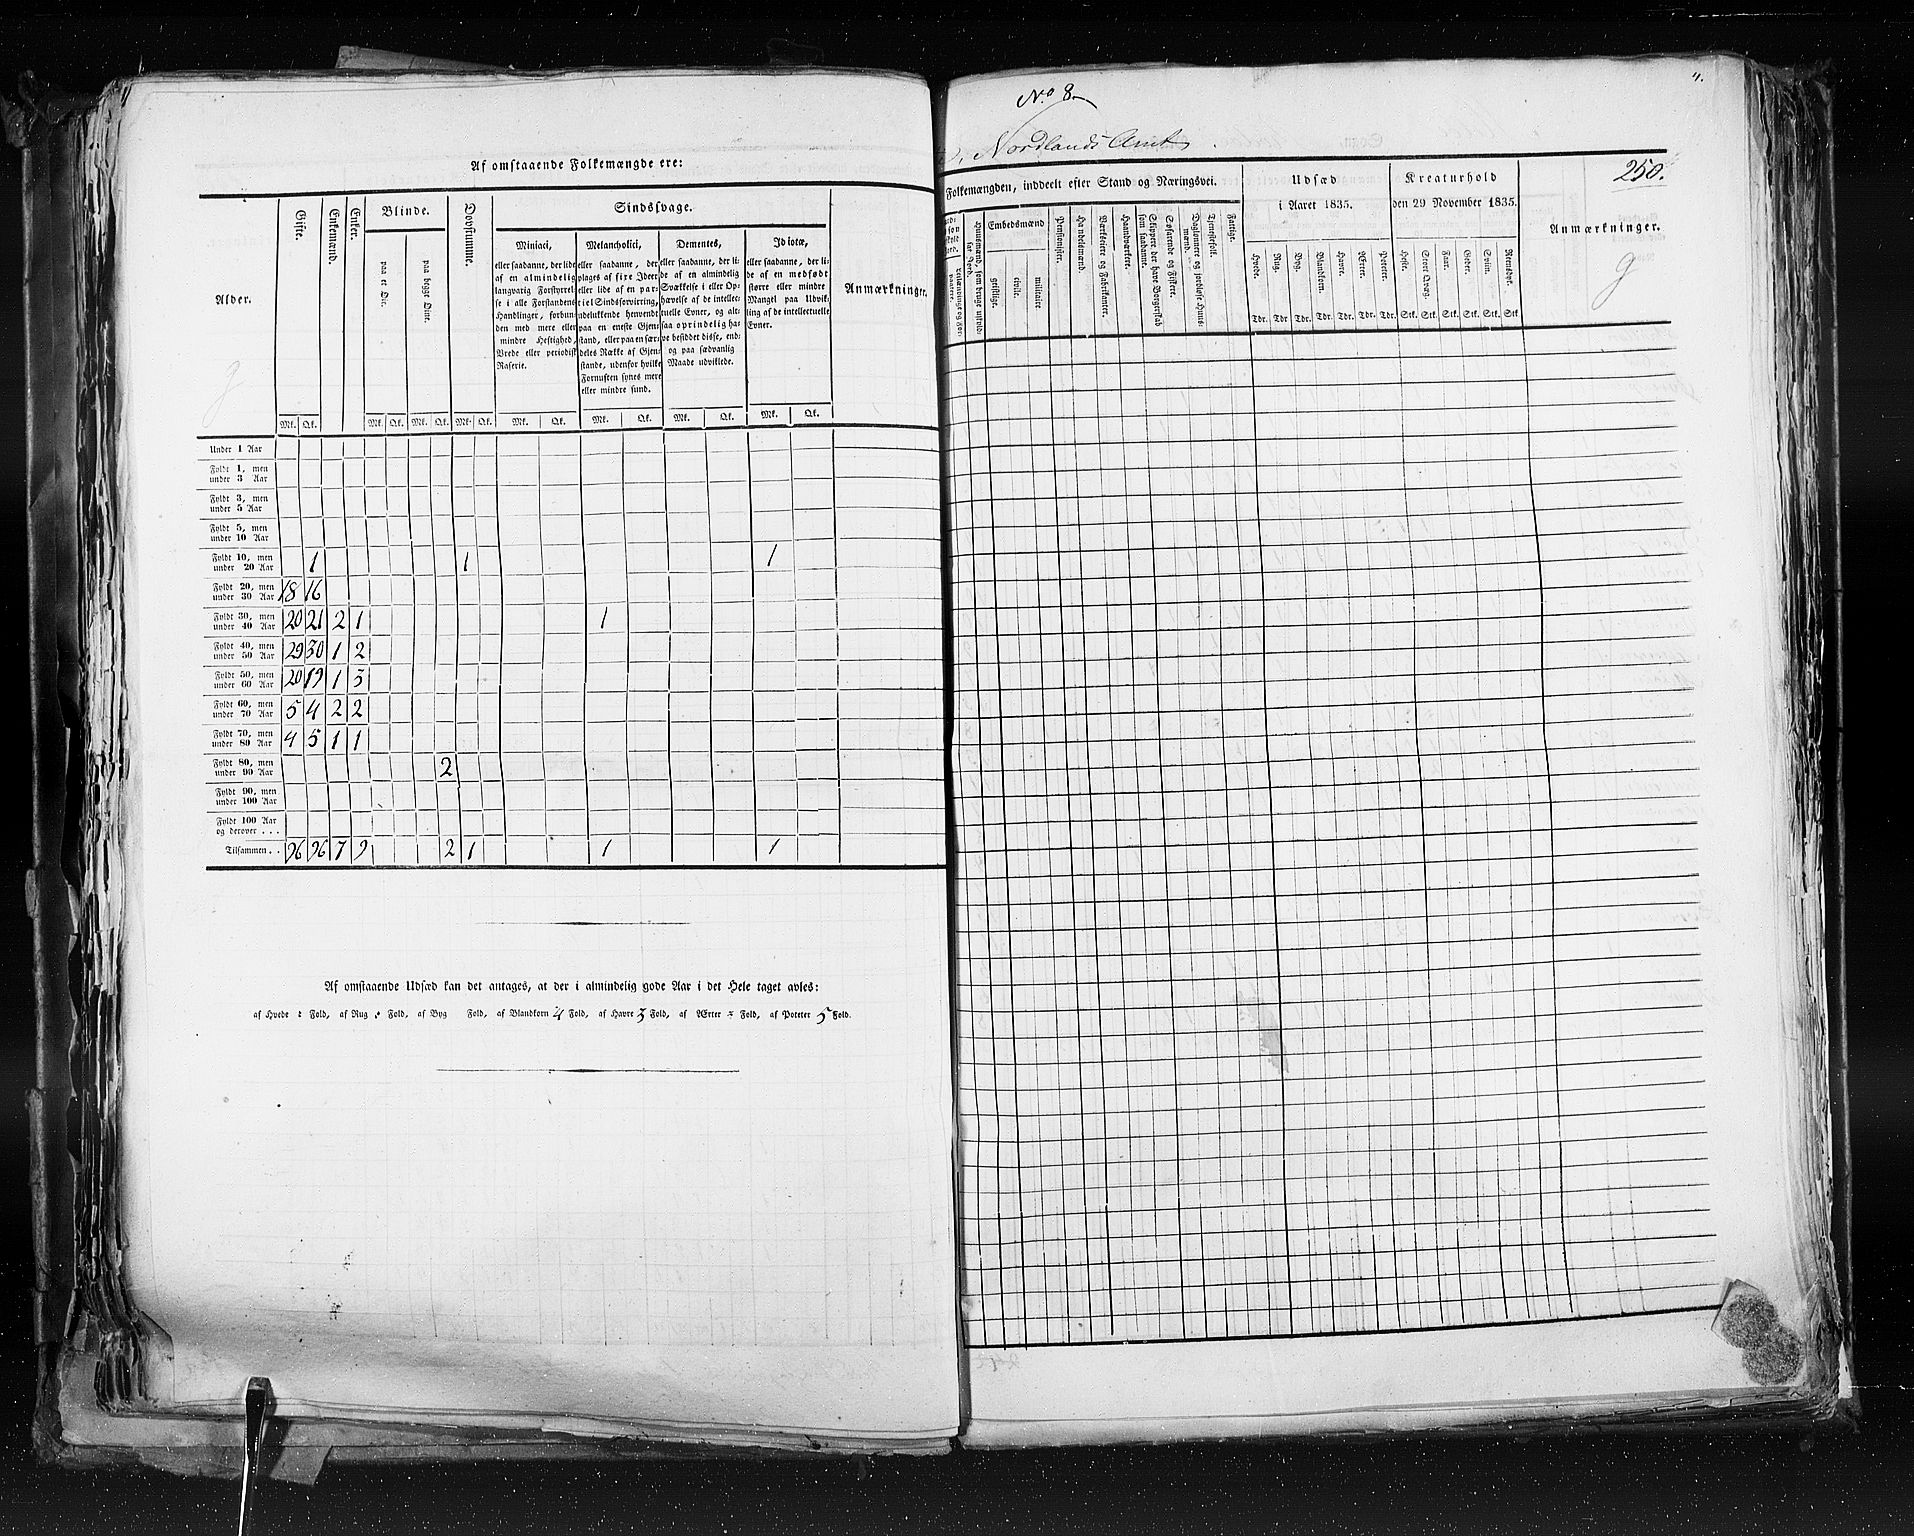 Af omstaaende Folkemængde ere:
Alder.
Gifte.
Enkemænd.
Enker.
Blinde.
paa et Øie.
paa begge Øine.
Døvstumme.
Sindssvage.
Miniaci,
eller saadanne, der lide
af en almindelig
langvarig Forstyrrel-
se i alle Forstandens
Handlinger, forbun-
den med mere eller
mindre Heftighed,
Vrede eller periodisk
Raserie.
Melancholici,
eller saadanne, der
plages af fixe Ideer
eller lide af en par-
tiel Sindsforvirring,
udelukkende henvendt
paa en eneste Gjen-
stand, eller paa en sær-
deles Række af Gjen-
stande, udenfor hvilke
Fornuften synes mere
eller mindre sund.
Dementes,
eller saadanne, der li-
de af en almindelig
Svækkelse i eller Op-
hævelse af de intellec-
tuelle Evner, og alt-
saa oprindelig ha-
ve besiddet disse, end-
og paa sædvanlig
Maade udviklede.
Idiotæ,
eller saadanne, der li-
de af en medfødt
større eller mindre
Mangel paa Udvik-
ling af de intellectuelle
Evner.
Anmærkninger.
Mk. Qk. Mk. Qk. Mk. Qk. Mk. Qk. Mk. Qk. Mk. Qk. Mk. Qk. Mk. Qk.
Under 1 Aar
Fyldt 1, men
under 3 Aar
Fyldt 3, men
under 5 Aar
Fyldt 5, men
under 10 Aar
Fyldt 10, men
under 20 Aar 1 1 1
Fyldt 20, men
under 30 Aar 18 16
Fyldt 30, men
under 40 Aar 20 21 2 1 1
Fyldt 40, men
under 50 Aar 29 30 1 2
Fyldt 50, men
under 60 Aar 20 19 1 3
Fyldt 60, men
under 70 Aar 5 4 2 2
Fyldt 70, men
under 80 Aar 4 5 1 1
Fyldt 80, men
under 90 Aar 2
Fyldt 90, men
under 100 Aar
Fyldt 100 Aar
og derover . . .
Tilsammen . . 96 96 7 9 2 1 1 1
Af omstaaende Udsæd kan det antages, at der i almindelig gode Aar i det Hele taget avles:
af Hvede Fold, af Rug Fold, af Byg Fold, af Blandkorn 4 Fold, af Havre 3 Fold, af Ærter Fold, af Poteter 5 Fold.
4.
No 8
Nordlands Amt
250.
Folkemængden, inddeelt efter Stand og Næringsvei.
Embedsmænd
geistlige.
civile.
militaire
Pensionister.
Handelsmænd.
Værkseiere og
Fabrikanter.
Handværkere.
Skippere, der have Borgerskab
som saadanne.
Søfarende og
Fiskere.
Daglønnere og jordløse Huus-
mænd.
Tjenestefolk.
Fattige.
Udsæd
i Aaret 1835.
Hvede.
Rug.
Byg.
Blandkorn.
Havre.
Ærter.
Poteter.
Tdr. Tdr. Tdr. Tdr. Tdr. Tdr. Tdr.
Kreaturhold
den 29 November 1835.
Heste.
Stort Qvæg.
Faar.
Geder.
Sviin.
Rensdyr.
Stk. Stk. Stk. Stk. Stk. Stk.
Anmærkninger.